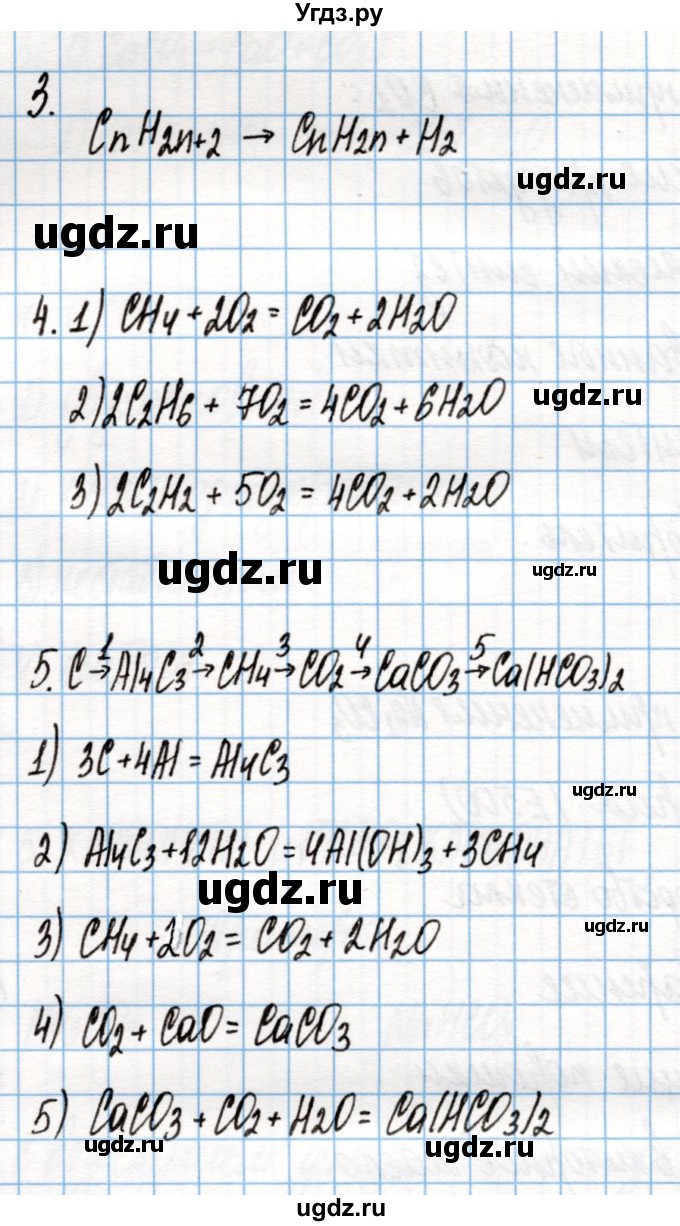 Угдз.ру
3.
CnH2n+2 → CnH2n + H2
ugdz.ru
ugdz.ru
4. 1) CH4 + 2O2 = CO2 + 2H2O
2) 2C2H6 + 7O2 = 4CO2 + 6H2O
ugdz.ru
3) 2C2H2 + 5O2 = 4CO2 + 2H2O
ugdz.ru
ugdz.ru
5. C →1 Al4C3 →2 CH4 →3 CO2 →4 CaCO3 →5 Ca(HCO3)2
1) 3C + 4Al = Al4C3
ugdz.ru
2) Al4C3 + 12H2O = 4Al(OH)3 + 3CH4
ugdz.ru
ugdz.ru
3) CH4 + 2O2 = CO2 + 2H2O
4) CO2 + CaO = CaCO3
5) CaCO3 + CO2 + H2O = Ca(HCO3)2
ugdz.ru
ugdz.ru
ugdz.ru